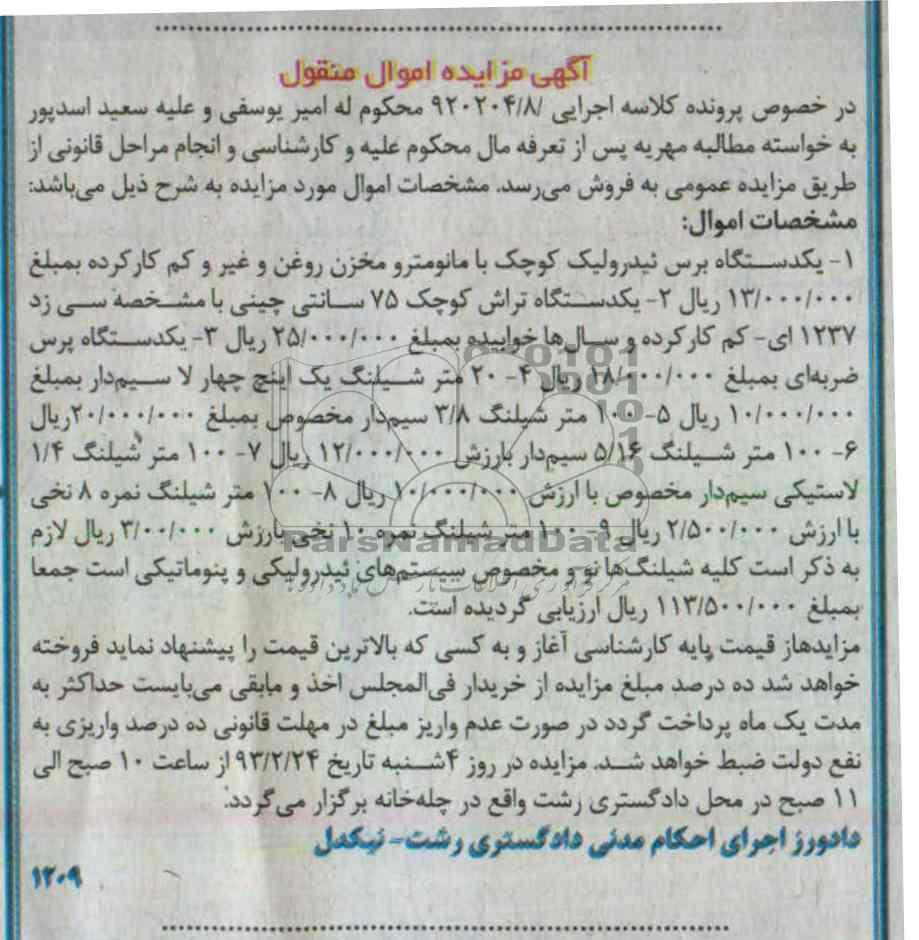 آگهی مزایده اموال منقول
در خصوص پرونده کلاسه اجرایی /۹۲۰۲۰۴/۸ محکوم له امیر یوسفی و علیه سعید اسدپور
به خواسته مطالبه مهریه پس از تعرفه مال محکوم علیه و کارشناسی و انجام مراحل قانونی از
طریق مزایده عمومی به فروش می‌رسد. مشخصات اموال مورد مزایده به شرح ذیل می‌باشد:
مشخصات اموال:
۱- یکدستگاه برس ئیدرولیک کوچک با مانومترو مخزن روغن و غیر و کم کارکرده بمبلغ
۱۳/۰۰۰/۰۰۰ ریال ۲- یکدستگاه تراش کوچک ۷۵ سانتی چینی با مشخصه سی زد
۱۲۳۷ ای- کم کارکرده و سال‌ها خوابیده بمبلغ ۲۵/۰۰۰/۰۰۰ ریال ۳- یکدستگاه پرس
ضربه‌ای بمبلغ ۱۸/۰۰۰/۰۰۰ ریال ۴- ۲۰ متر شیلنگ یک اینچ چهار لا سیم‌دار بمبلغ
۱۰/۰۰۰/۰۰۰ ریال ۵- ۱۰۰ متر شیلنگ ۳/۸ سیم‌دار مخصوص بمبلغ ۲۰/۰۰۰/۰۰۰ریال
۶- ۱۰۰ متر شیلنگ ۵/۱۶ سیم‌دار بارزش ۱۲/۰۰۰/۰۰۰ ریال ۷- ۱۰۰ متر شیلنگ ۱/۴
لاستیکی سیم‌دار مخصوص با ارزش ۱۰/۰۰۰/۰۰۰ ریال ۸- ۱۰۰ متر شیلنگ نمره ۸ نخی
با ارزش ۲/۵۰۰/۰۰۰ ریال ۹- ۱۰۰ متر شیلنگ نمره ۱۰ نخی بارزش ۳/۰۰/۰۰۰ ریال لازم
به ذکر است کلیه شیلنگ‌ها نو و مخصوص سیستم‌های ئیدرولیکی و پنوماتیکی است جمعا
بمبلغ ۱۱۳/۵۰۰/۰۰۰ ریال ارزیابی گردیده است.
مزایدهاز قیمت پایه کارشناسی آغاز و به کسی که بالاترین قیمت را پیشنهاد نماید فروخته
خواهد شد ده درصد مبلغ مزایده از خریدار فی‌المجلس اخذ و مابقی می‌بایست حداکثر به
مدت یک ماه پرداخت گردد در صورت عدم واریز مبلغ در مهلت قانونی ده درصد واریزی به
نفع دولت ضبط خواهد شد. مزایده در روز ۴شنبه تاریخ ۹۳/۲/۲۴ از ساعت ۱۰ صبح الی
۱۱ صبح در محل دادگستری رشت واقع در چله‌خانه برگزار می‌گردد.
دادورز اجرای احکام مدنی دادگستری رشت- نیکدل
۱۲۰۹
ParsNamadData